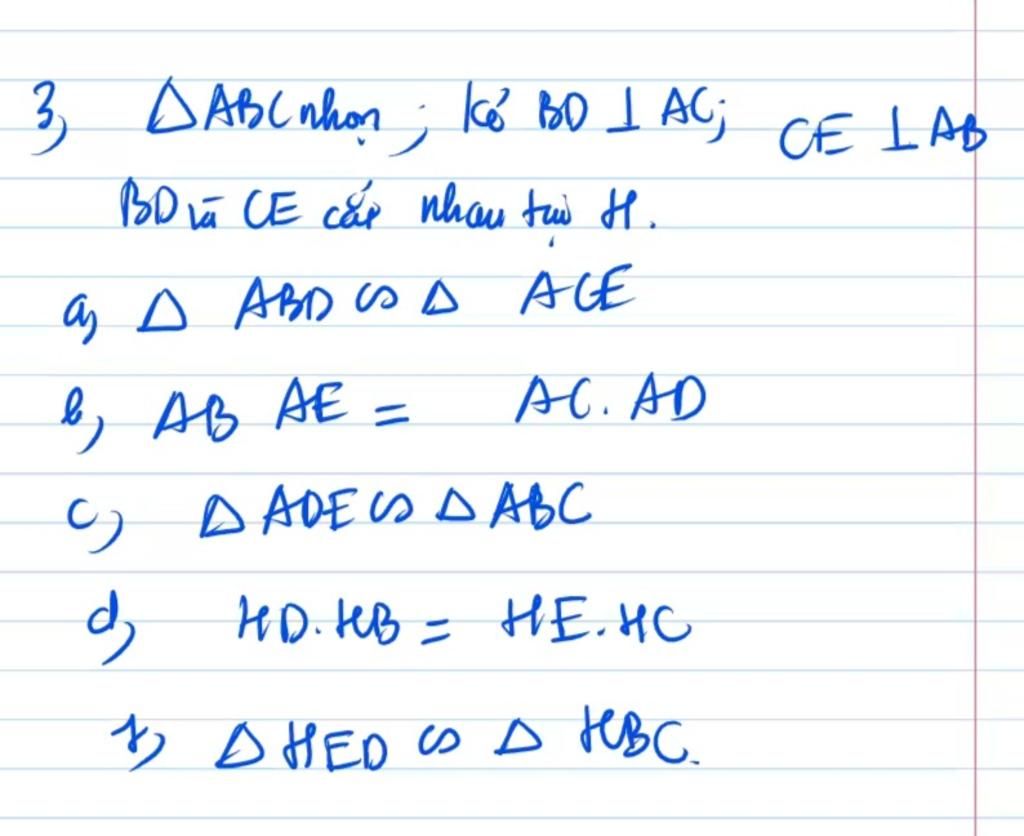 3, △ ABC nhọn ; kẻ BD ⊥ AC; CE ⊥ AB
BD và CE cắt nhau tại H.
a, △ ABD ∽ △ ACE
b, AB AE = AC. AD
c, △ ADE ∽ △ ABC
d, HD. HB = HE. HC
f, △ HED ∽ △ HBC.